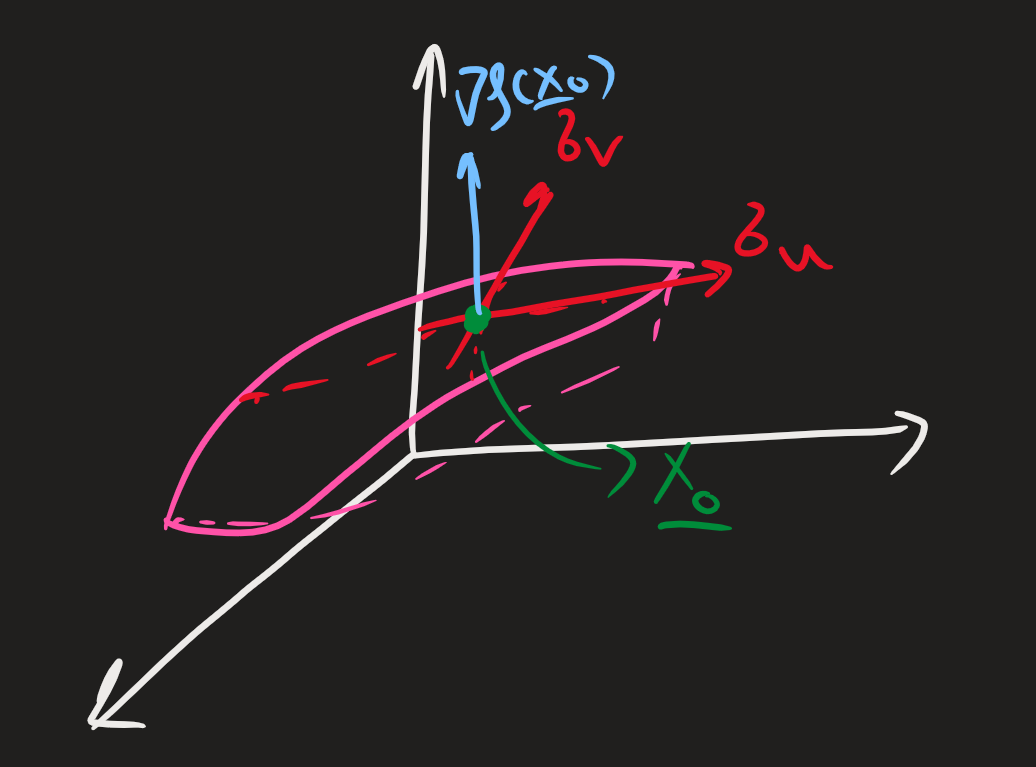 ∇f(x₀)
δv
δu
x₀